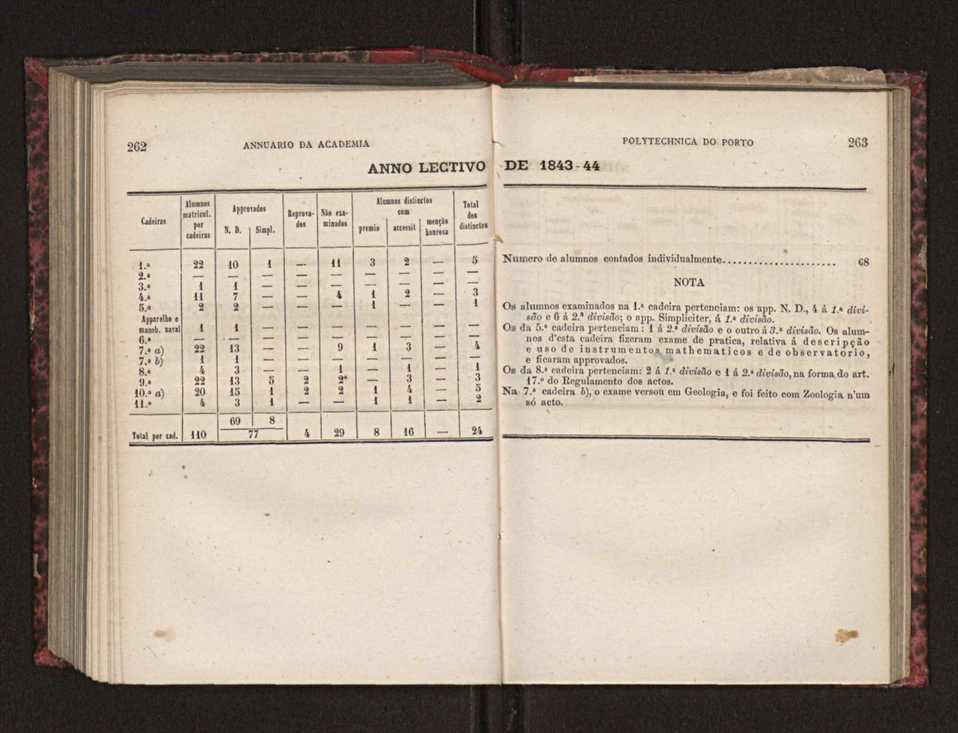 262
ANNUARIO DA ACADEMIA
ANNO LECTIVO
Cadeiras | Alumnos matricul. por cadeiras | Approvados N. D. | Simpl. | Reprovados | Não examinados | Alumnos distinctos com premio | accessit | menção honrosa | Total dos distinctos
1.ª 22 10 1 — 11 3 2 — 5
2.ª — — — — — — — — —
3.ª 1 1 — — — — — — —
4.ª 11 7 — — 4 1 2 — 3
5.ª 2 2 — — — 1 — — 1
Apparelho e
manob. naval 1 1 — — — — — — —
6.ª — — — — — — — — —
7.ª a) 22 13 — — 9 1 3 — 4
7.ª b) 1 1 — — — — — — —
8.ª 4 3 — — 1 — 1 — 1
9.ª 22 13 5 2 2 — 3 — 3
10.ª a) 20 15 1 2 2 1 4 — 5
11.ª 4 3 1 — — 1 1 — 2
69 8
Total por cad. 110 77 4 29 8 16 — 24
POLYTECHNICA DO PORTO
263
DE 1843-44
Numero de alumnos contados individualmente..................... 68
NOTA
Os alumnos examinados na 1.ª cadeira pertenciam: os app. N. D., 4 á 1.ª divi-
são e 6 á 2.ª divisão; o app. Simpliciter, á 1.ª divisão.
Os da 5.ª cadeira pertenciam: 1 á 2.ª divisão e o outro á 3.ª divisão. Os alum-
nos d'esta cadeira fizeram exame de pratica, relativa á descripção
e uso de instrumentos mathematicos e de observatorio,
e ficaram approvados.
Os da 8.ª cadeira pertenciam: 2 á 1.ª divisão e 1 á 2.ª divisão, na forma do art.
17.º do Regulamento dos actos.
Na 7.ª cadeira b), o exame versou em Geologia, e foi feito com Zoologia n'um
só acto.